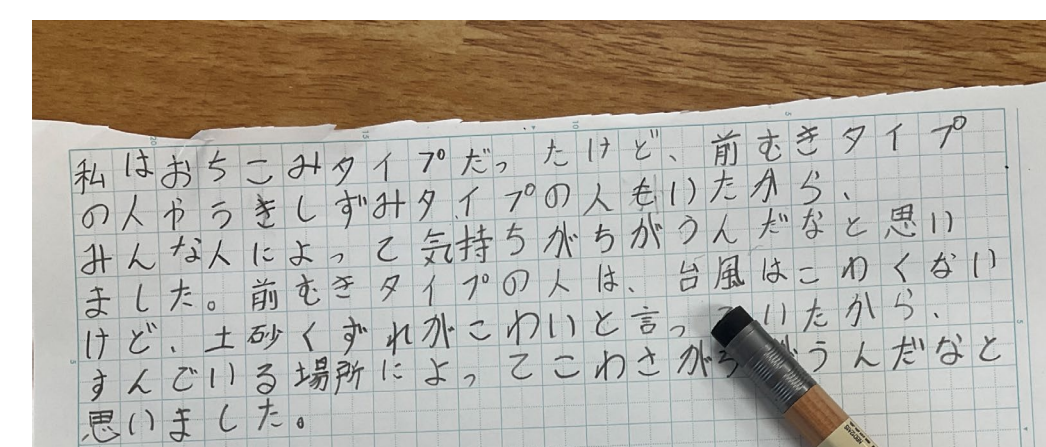 私はおちこみタイプだったけど、前むきタイプ
の人やうきしずみタイプの人もいたから、
みんな人によって気持ちがちがうんだなと思い
ました。前むきタイプの人は、台風はこわくない
けど、土砂くずれがこわいと言っていたから、
すんでいる場所によってこわさがちがうんだなと
思いました。